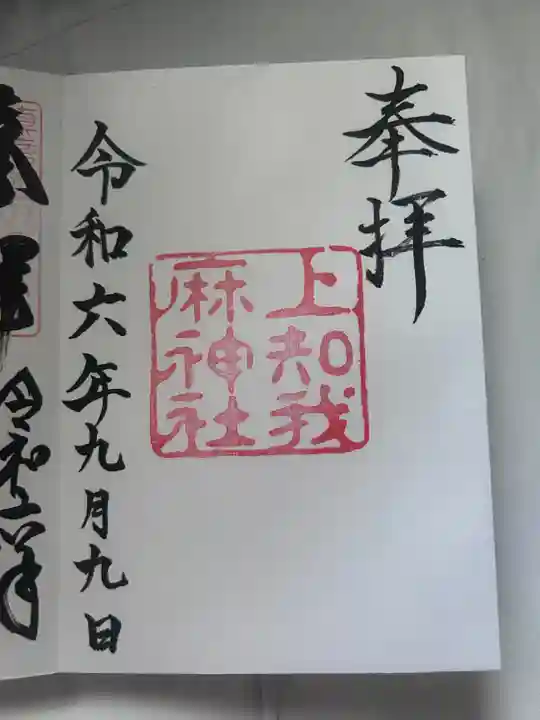 奉拝
上知我
麻神社
令和六年九月九日